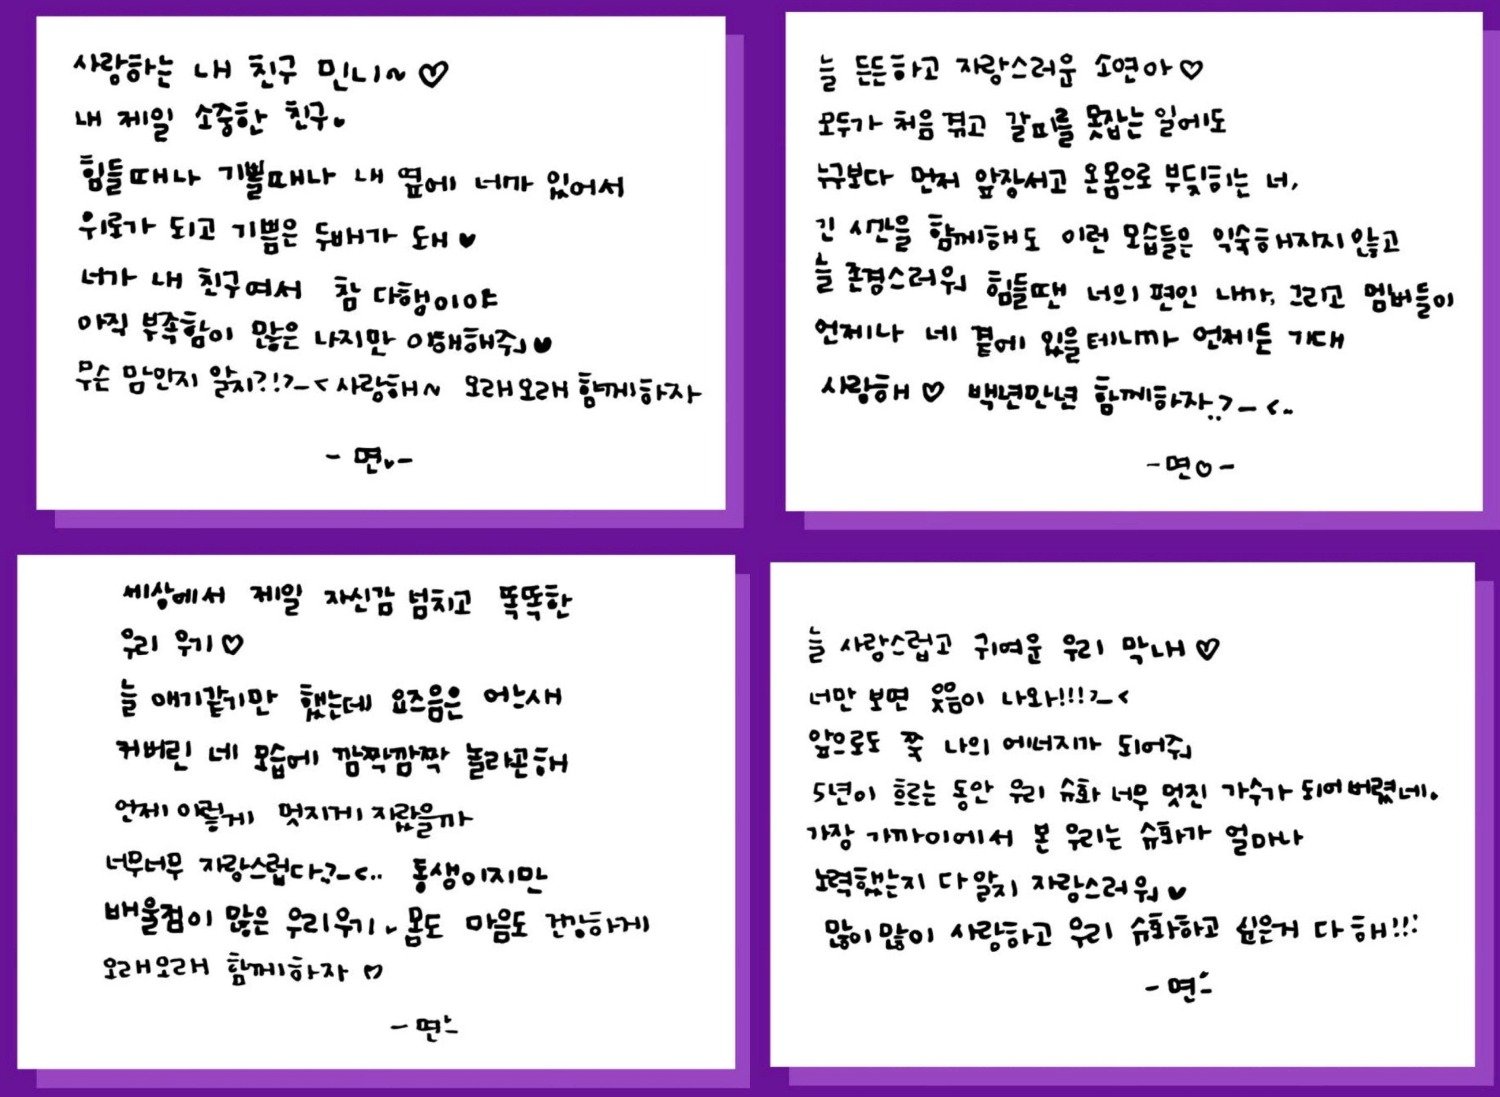 사랑하는 내 친구 민니~ ♡
내 제일 소중한 친구♥
힘들때나 기쁠때나 내 옆에 너가 있어서
위로가 되고 기쁨은 두배가 돼 ♥
너가 내 친구여서 참 다행이야
아직 부족함이 많은 나지만 이해해줘 ♥
무슨 맘인지 알지?!?_< 사랑해~ 오래오래 함께하자
- 면♥-
늘 든든하고 자랑스러운 소연아♡
모두가 처음 겪고 갈피를 못잡는 일에도
누구보다 먼저 앞장서고 온몸으로 부딪히는 너,
긴 시간을 함께해도 이런 모습들은 익숙해지지 않고
늘 존경스러워 힘들땐 너의 편인 내가, 그리고 멤버들이
언제나 네 곁에 있을테니까 언제든 기대
사랑해 ♡ 백년만년 함께하자..?_<..
-면♡-
세상에서 제일 자신감 넘치고 똑똑한
우리 우기♡
늘 애기같기만 했는데 요즈음은 어느새
커버린 네 모습에 깜짝깜짝 놀라곤해
언제 이렇게 멋지게 자랐을까
너무너무 자랑스럽다..?_<.. 동생이지만
배울점이 많은 우리우기♥ 몸도 마음도 건강하게
오래오래 함께하자 ♡
- 면
늘 사랑스럽고 귀여운 우리 막내♡
너만 보면 웃음이 나와!!!?_<
앞으로도 쭉 나의 에너지가 되어줘
5년이 흐르는 동안 우리 슈화 너무 멋진 가수가 되어버렸네.
가장 가까이에서 본 우리는 슈화가 얼마나
노력했는지 다 알지 자랑스러워 ♥
많이많이 사랑하고 우리 슈화하고 싶은거 다 해!!!
- 면